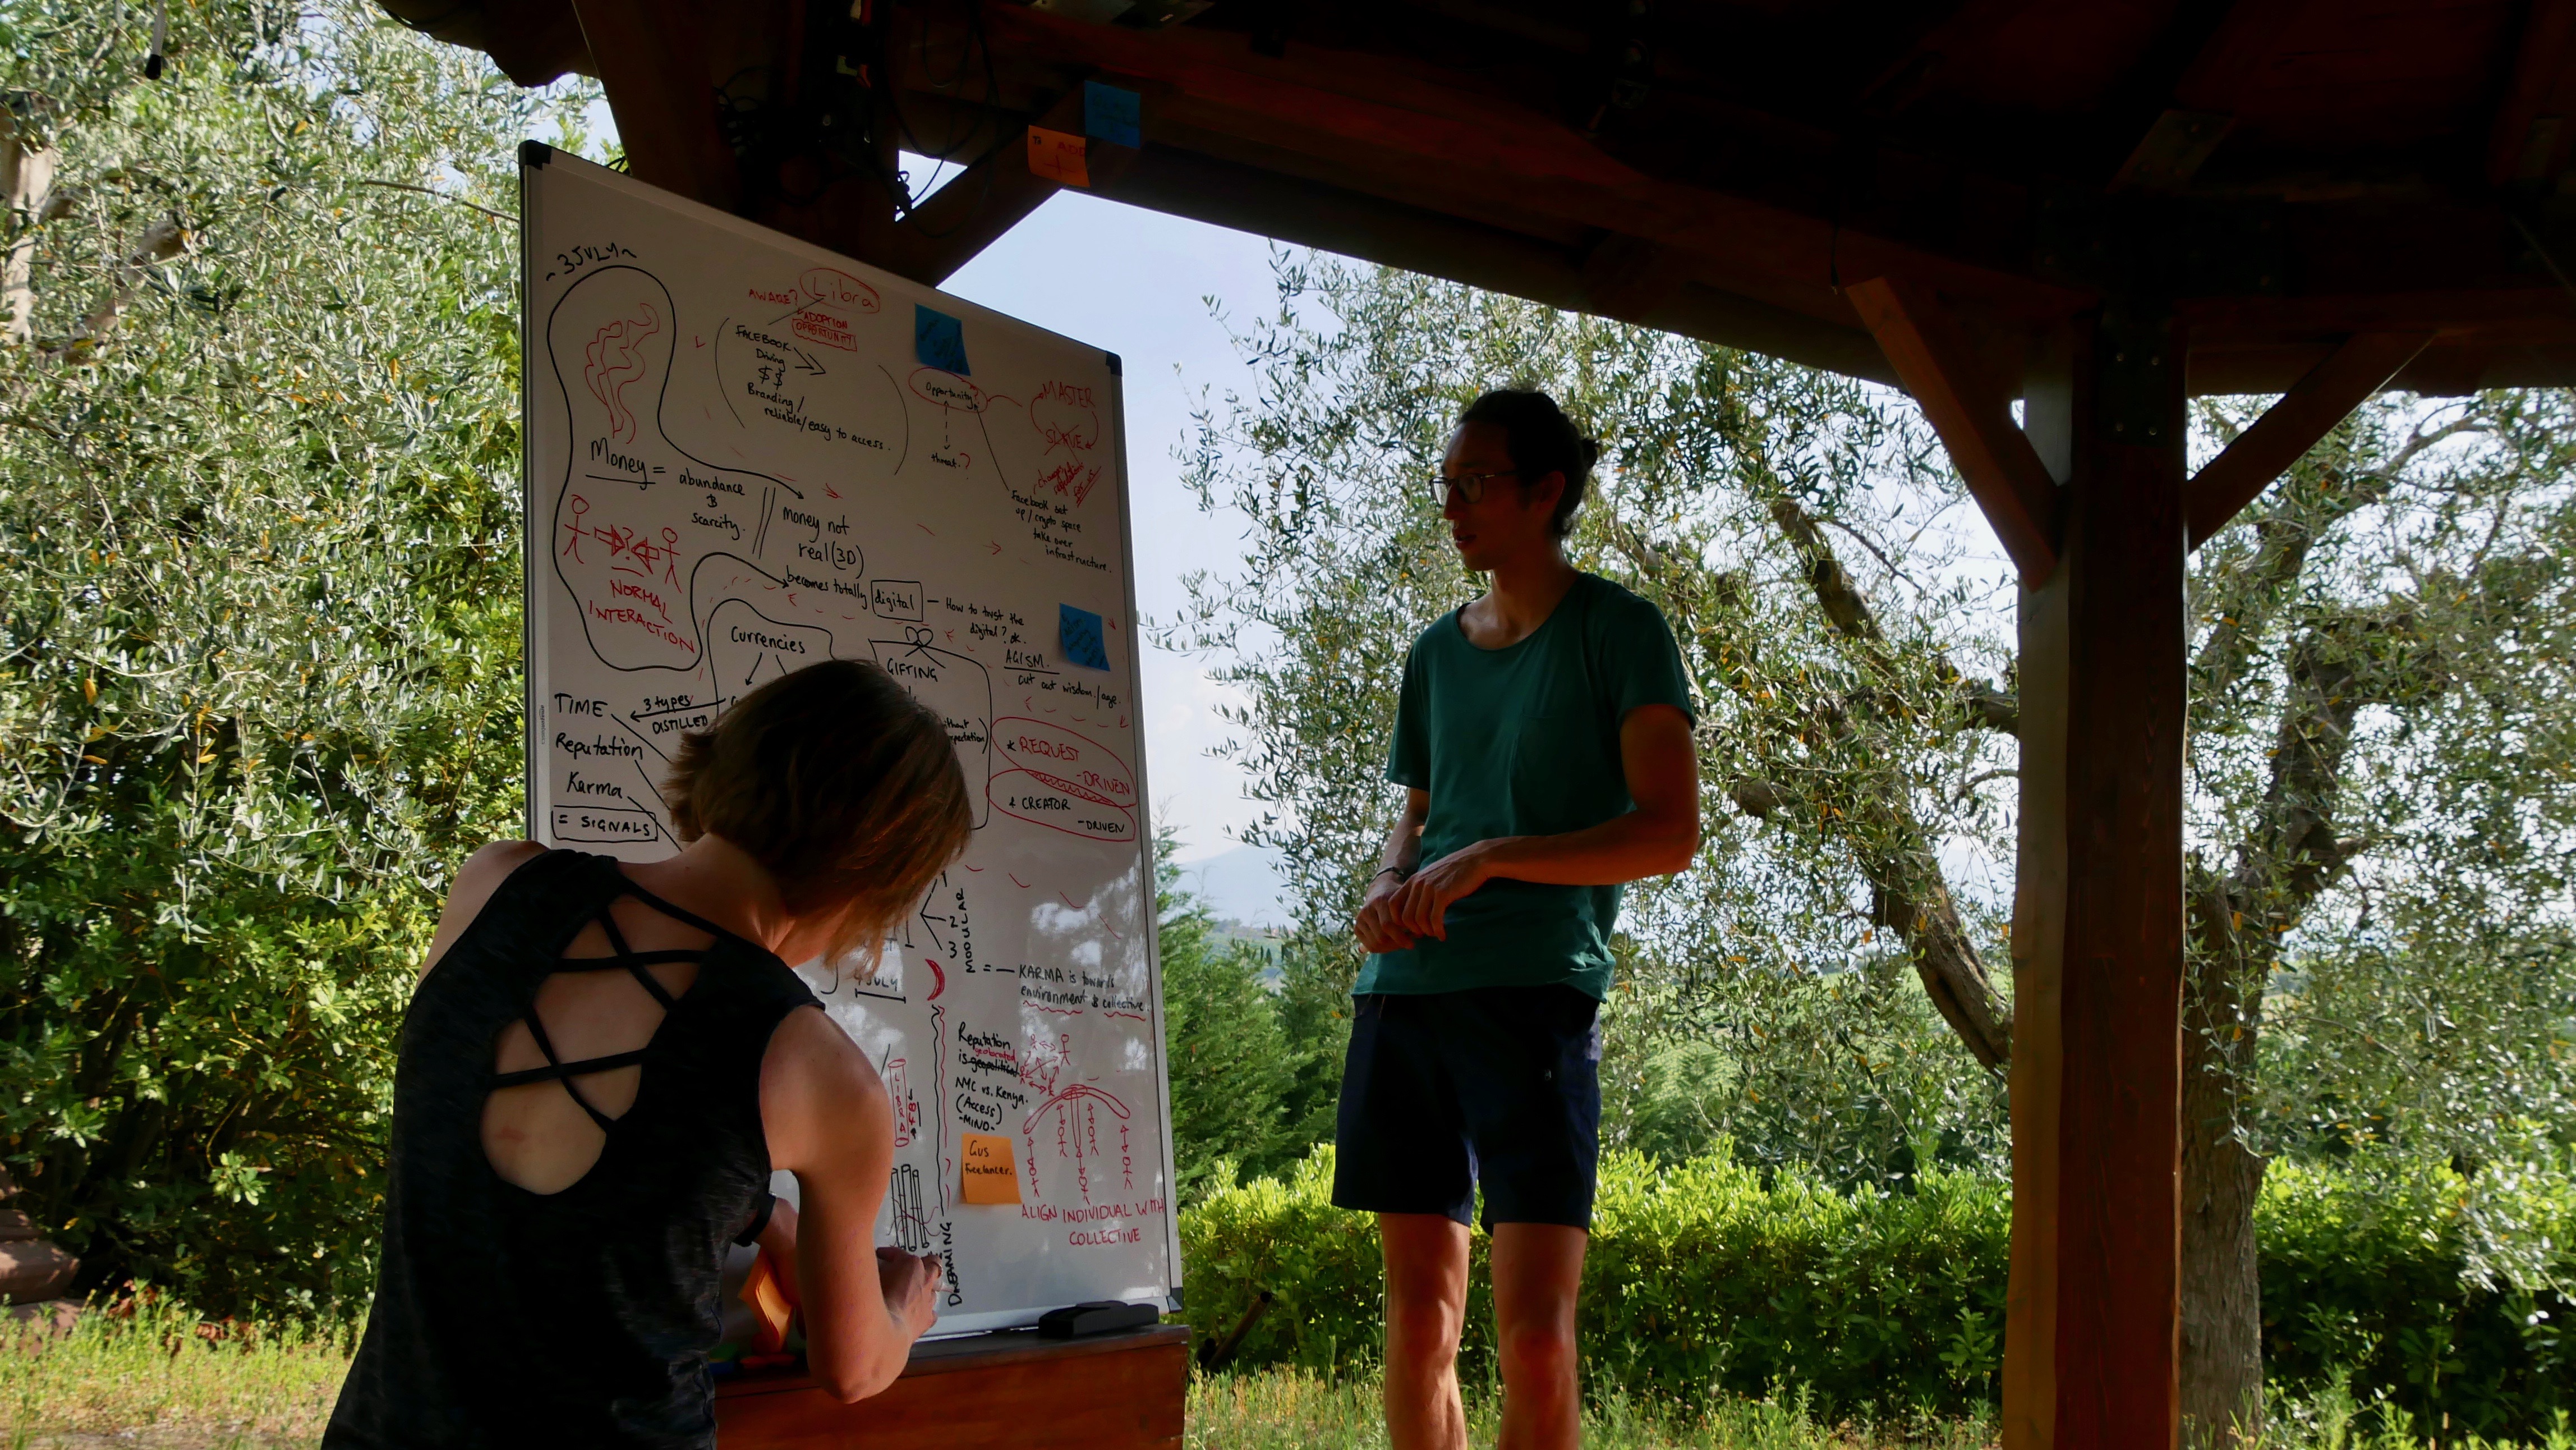 ~3JULY~
AWARE?
Libra
ADOPTION
OPPORTUNITY
FACEBOOK
Driving
$ $
Branding/
reliable/easy to access.
Opportunity?
threat.?
MASTER
SLAVE
Facebook bat
up/crypto space
take over
infrastructure.
Money =
abundance
&
scarcity.
Money not
real (3D)
becomes totally digital
— How to trust the
digital? ok.
?
NORMAL
INTERACTION
Currencies
GIFTING
AGISM.
cut out wisdom./age.
TIME
3 types
DISTILLED
Reputation
Karma
= SIGNALS
* REQUEST
-DRIVEN
& CREATOR
-DRIVEN
MODULAR
4 JULY
= — KARMA is towards
environment & collective.
Reputation
is geopolitical
NYC vs. Kenya.
(Access)
-MIND-
LIBRA
Gus
Freelancer.
ALIGN INDIVIDUAL WITH
COLLECTIVE
DREAMING